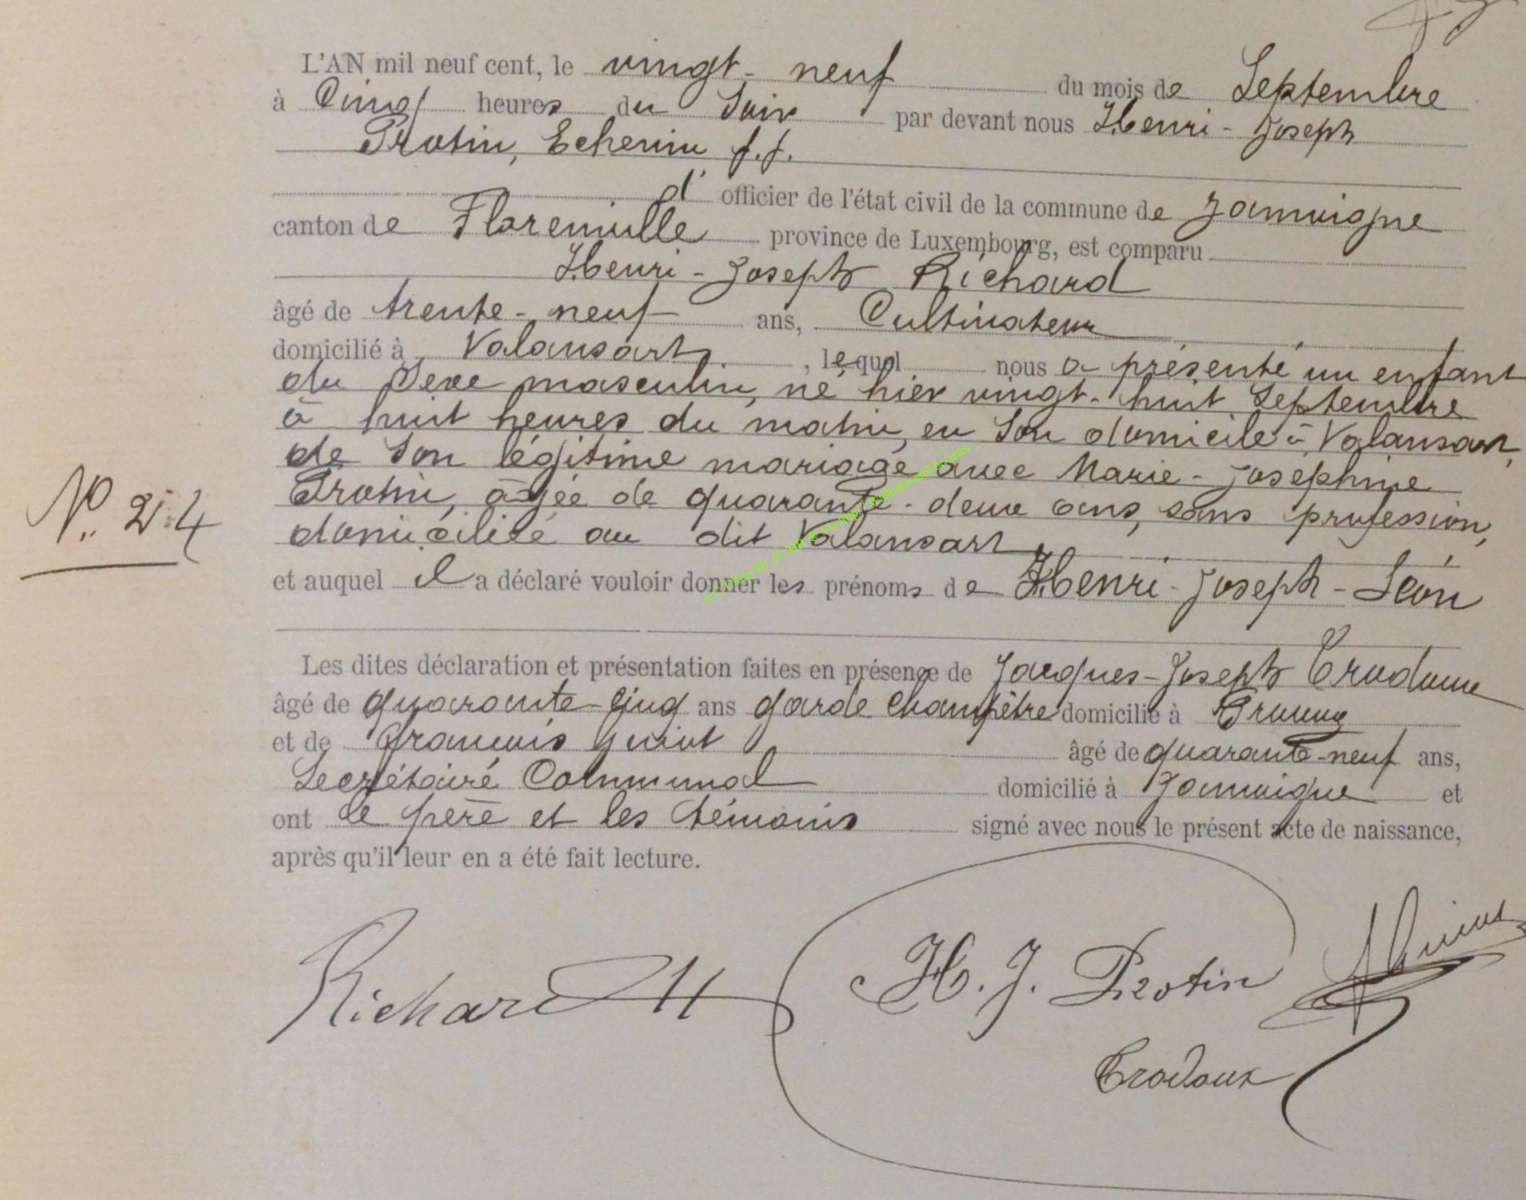 L'AN mil neuf cent, le vingt-neuf du mois de Septembre
à Cinq heures du Soir par devant nous Henri-Joseph
Protin, Echevin f.f.
d'officier de l'état civil de la commune de Jamoigne
canton de Florenville province de Luxembourg, est comparu
Henri-Joseph Richard
âgé de trente-neuf ans, Cultivateur
domicilié à Valansart, lequel nous a présenté un enfant
du Sexe masculin, né hier vingt-huit Septembre
à huit heures du matin, en Son domicile à Valansart,
de Son légitime mariage avec Marie-Joséphine
Protin, âgée de quarante-deux ans, sans profession,
domiciliée au dit Valansart,
N° 24
et auquel il a déclaré vouloir donner les prénoms de Henri-Joseph-Léon
Les dites déclaration et présentation faites en présence de Jacques-Joseph
âgé de quarante-cinq ans garde Champêtre domicilié à
et de François quarante-neuf ans,
Secrétaire Communal domicilié à Jamoigne et
ont le père et les témoins signé avec nous le présent acte de naissance,
après qu'il leur en a été fait lecture.
Richard H
H. J. Protin